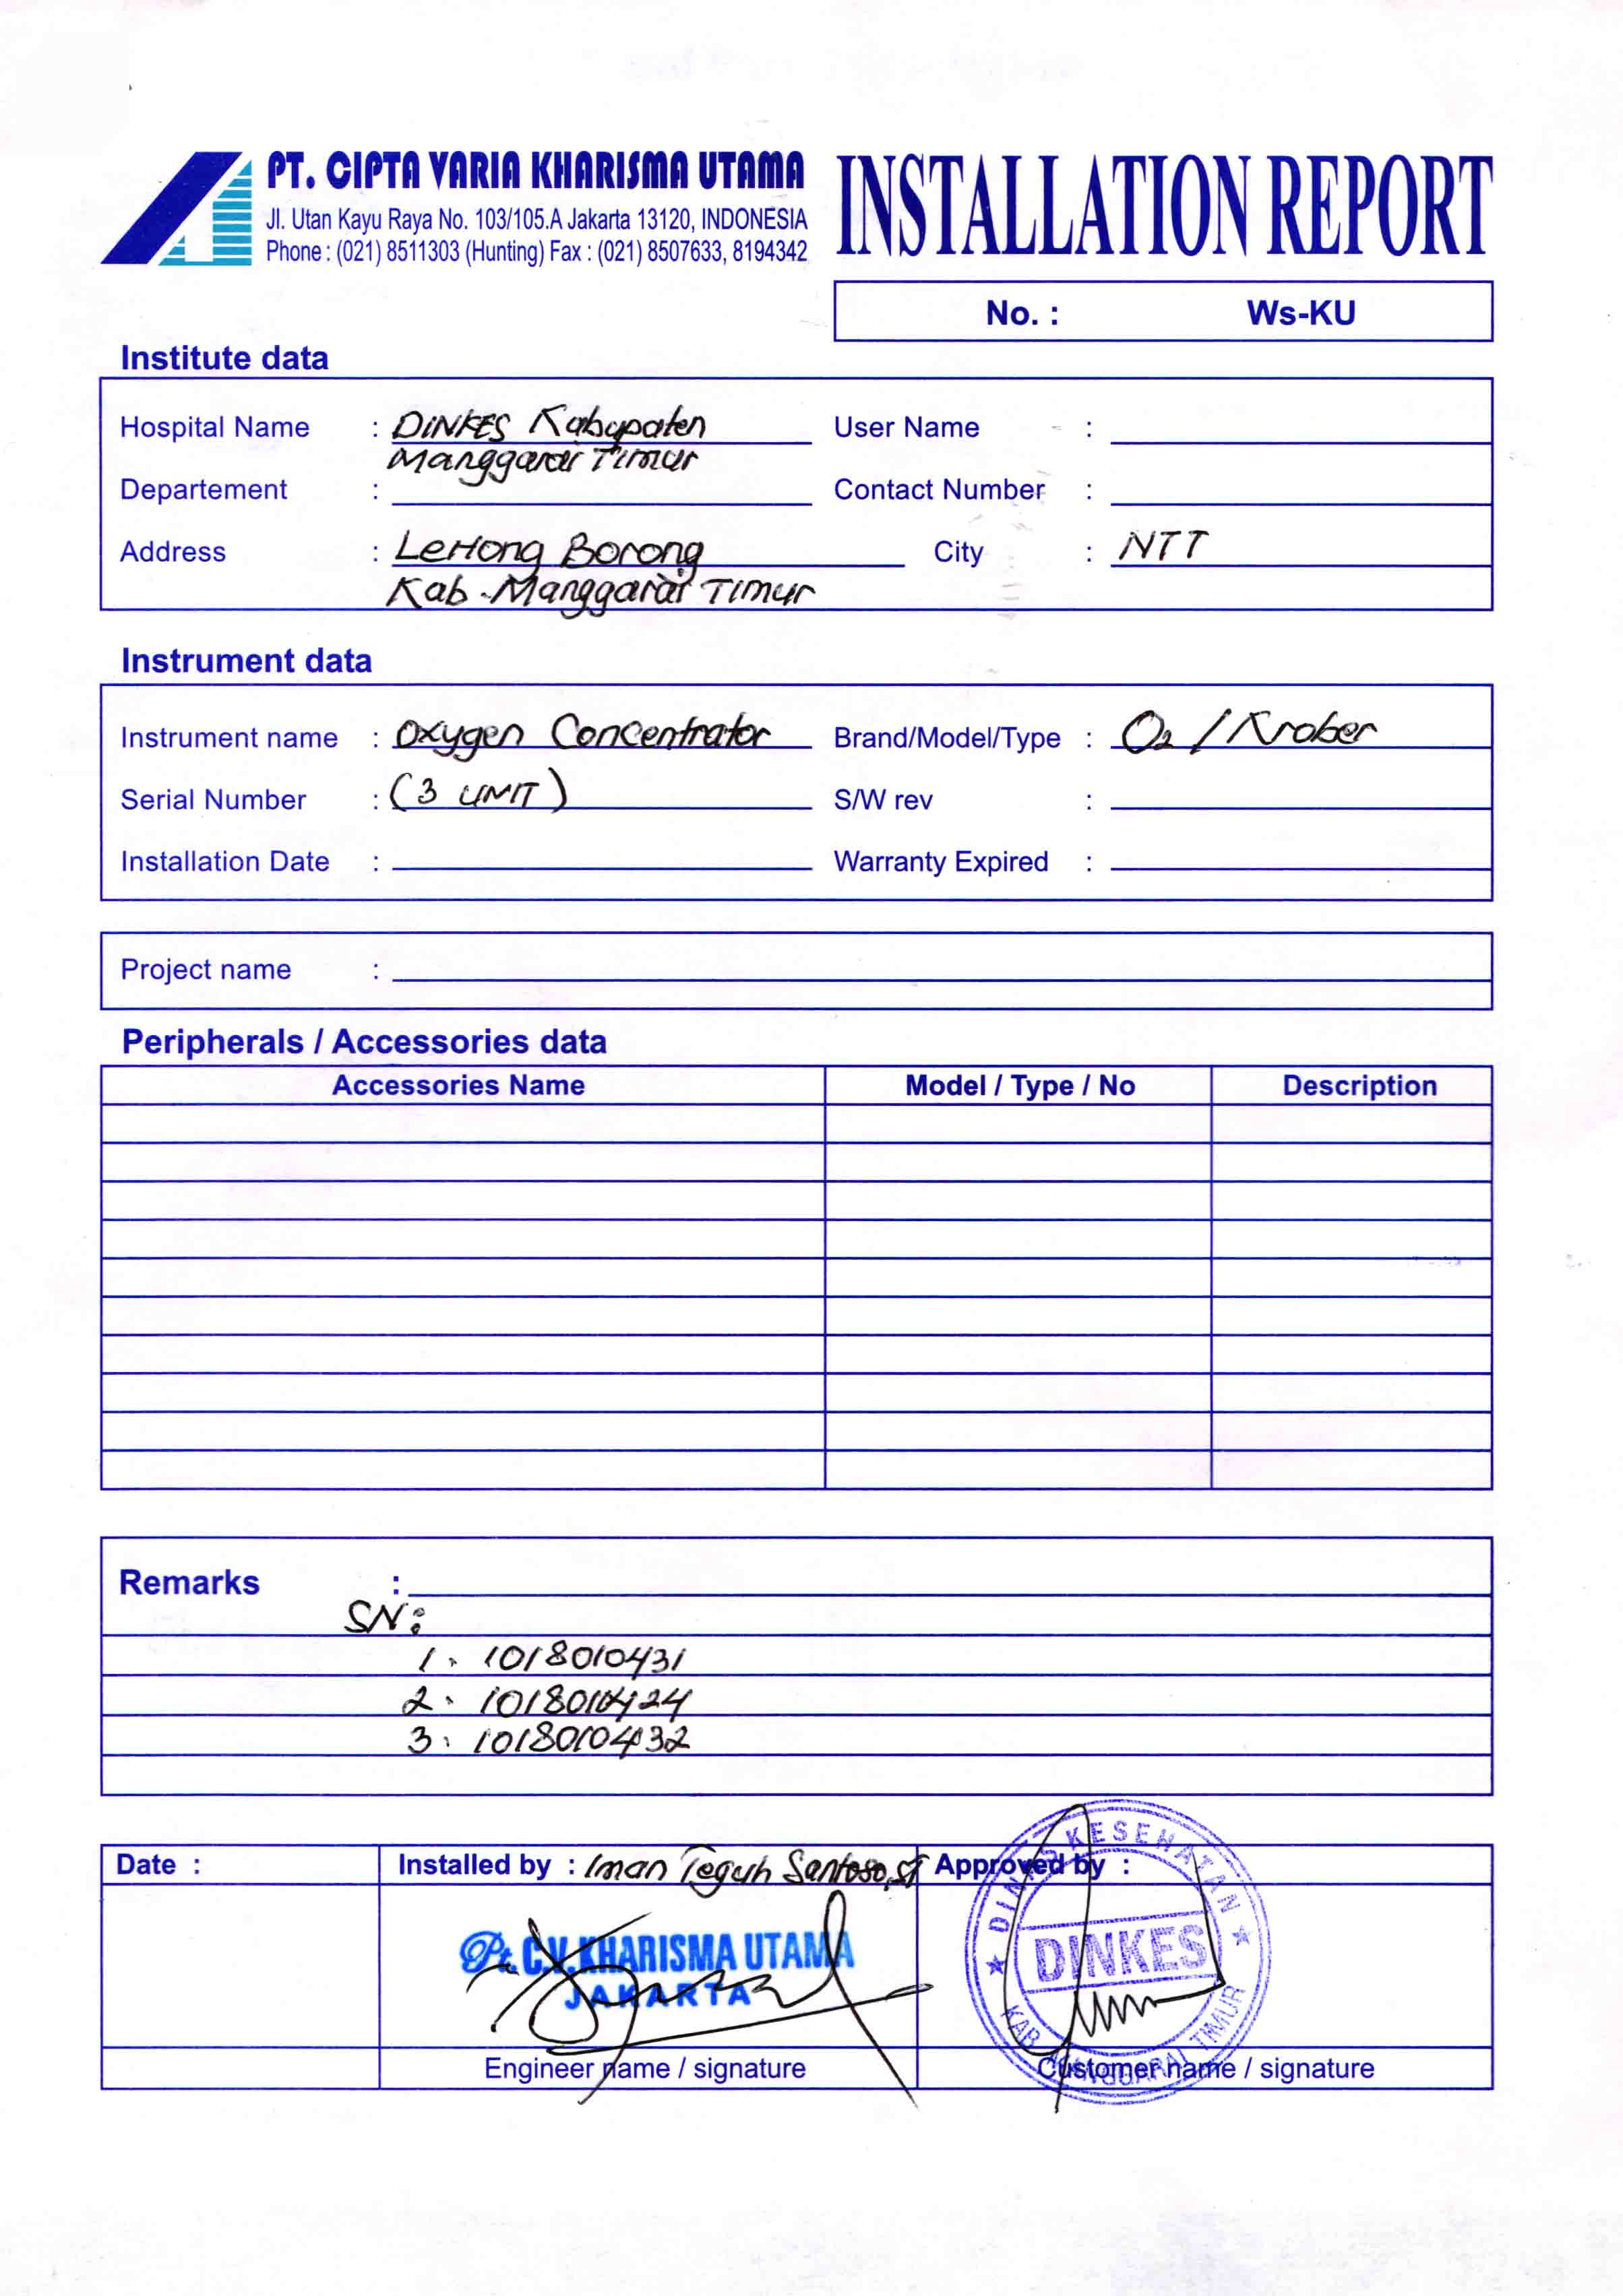 PT. CIPTA VARIA KHARISMA UTAMA
Jl. Utan Kayu Raya No. 103/105.A Jakarta 13120, INDONESIA
Phone : (021) 8511303 (Hunting) Fax : (021) 8507633, 8194342
INSTALLATION REPORT
No. : Ws-KU
Institute data
Hospital Name : DINKES Kabupaten User Name :
Manggarai Timur
Departement : Contact Number :
Address : LeHong Borong City : NTT
Kab. Manggarai Timur
Instrument data
Instrument name : Oxygen Concentrator Brand/Model/Type : O2 / Krober
Serial Number : (3 UNIT) S/W rev :
Installation Date : Warranty Expired :
Project name :
Peripherals / Accessories data
Accessories Name Model / Type / No Description
Remarks :
SN:
1. 1018010431
2. 1018010424
3. 1018010432
Date : Installed by : Iman Teguh Santoso, ST Approved by :
Pt. C.V. KHARISMA UTAMA
JAKARTA
DINAS KESEHATAN
DINKES
KAB. MANGGARAI TIMUR
Engineer name / signature Customer name / signature